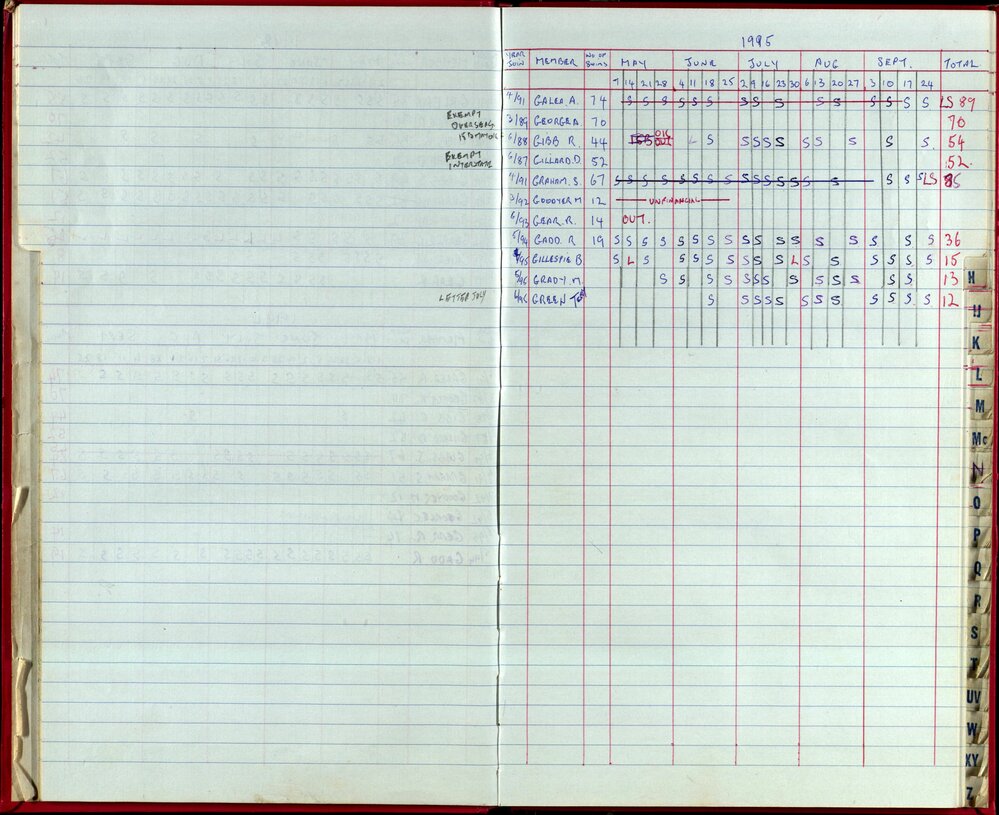 1995
YEAR JOIN MEMBER NO OF SWIMS MAY JUNE JULY AUG SEPT. TOTAL
7 14 21 28 4 11 18 25 2 9 16 23 30 6 13 20 27 3 10 17 24
4/91 GALEA A. 74 S S S S S S S S S S S S S S S S LS 89
EXEMPT OVERSEAS 3/89 GEORGE A. 70 70
6/88 GIBB R. 44 OUT S S S S S S S S S S 54
EXEMPT INTERSTATE 6/87 GILLARD. D 52 52.
4/91 GRAHAM. S. 67 S S S S S S S S S S S S S S S S S S LS 85
3/92 GOODYER M 12 UNFINANCIAL
6/93 GEAR. R. 14 OUT.
5/94 GADD. R 19 S S S S S S S S S S S S S S S S S 36
/95 GILLESPIE B S L S S S S S S S S L S S S S S S 15
5/95 GRADY. M S S S S S S S S S S S S S 13
LETTER JULY GREEN S S S S S S S S S S S S 12
H
IJ
K
L
M
Mc
N
O
P
Q
R
S
T
UV
W
XY
Z